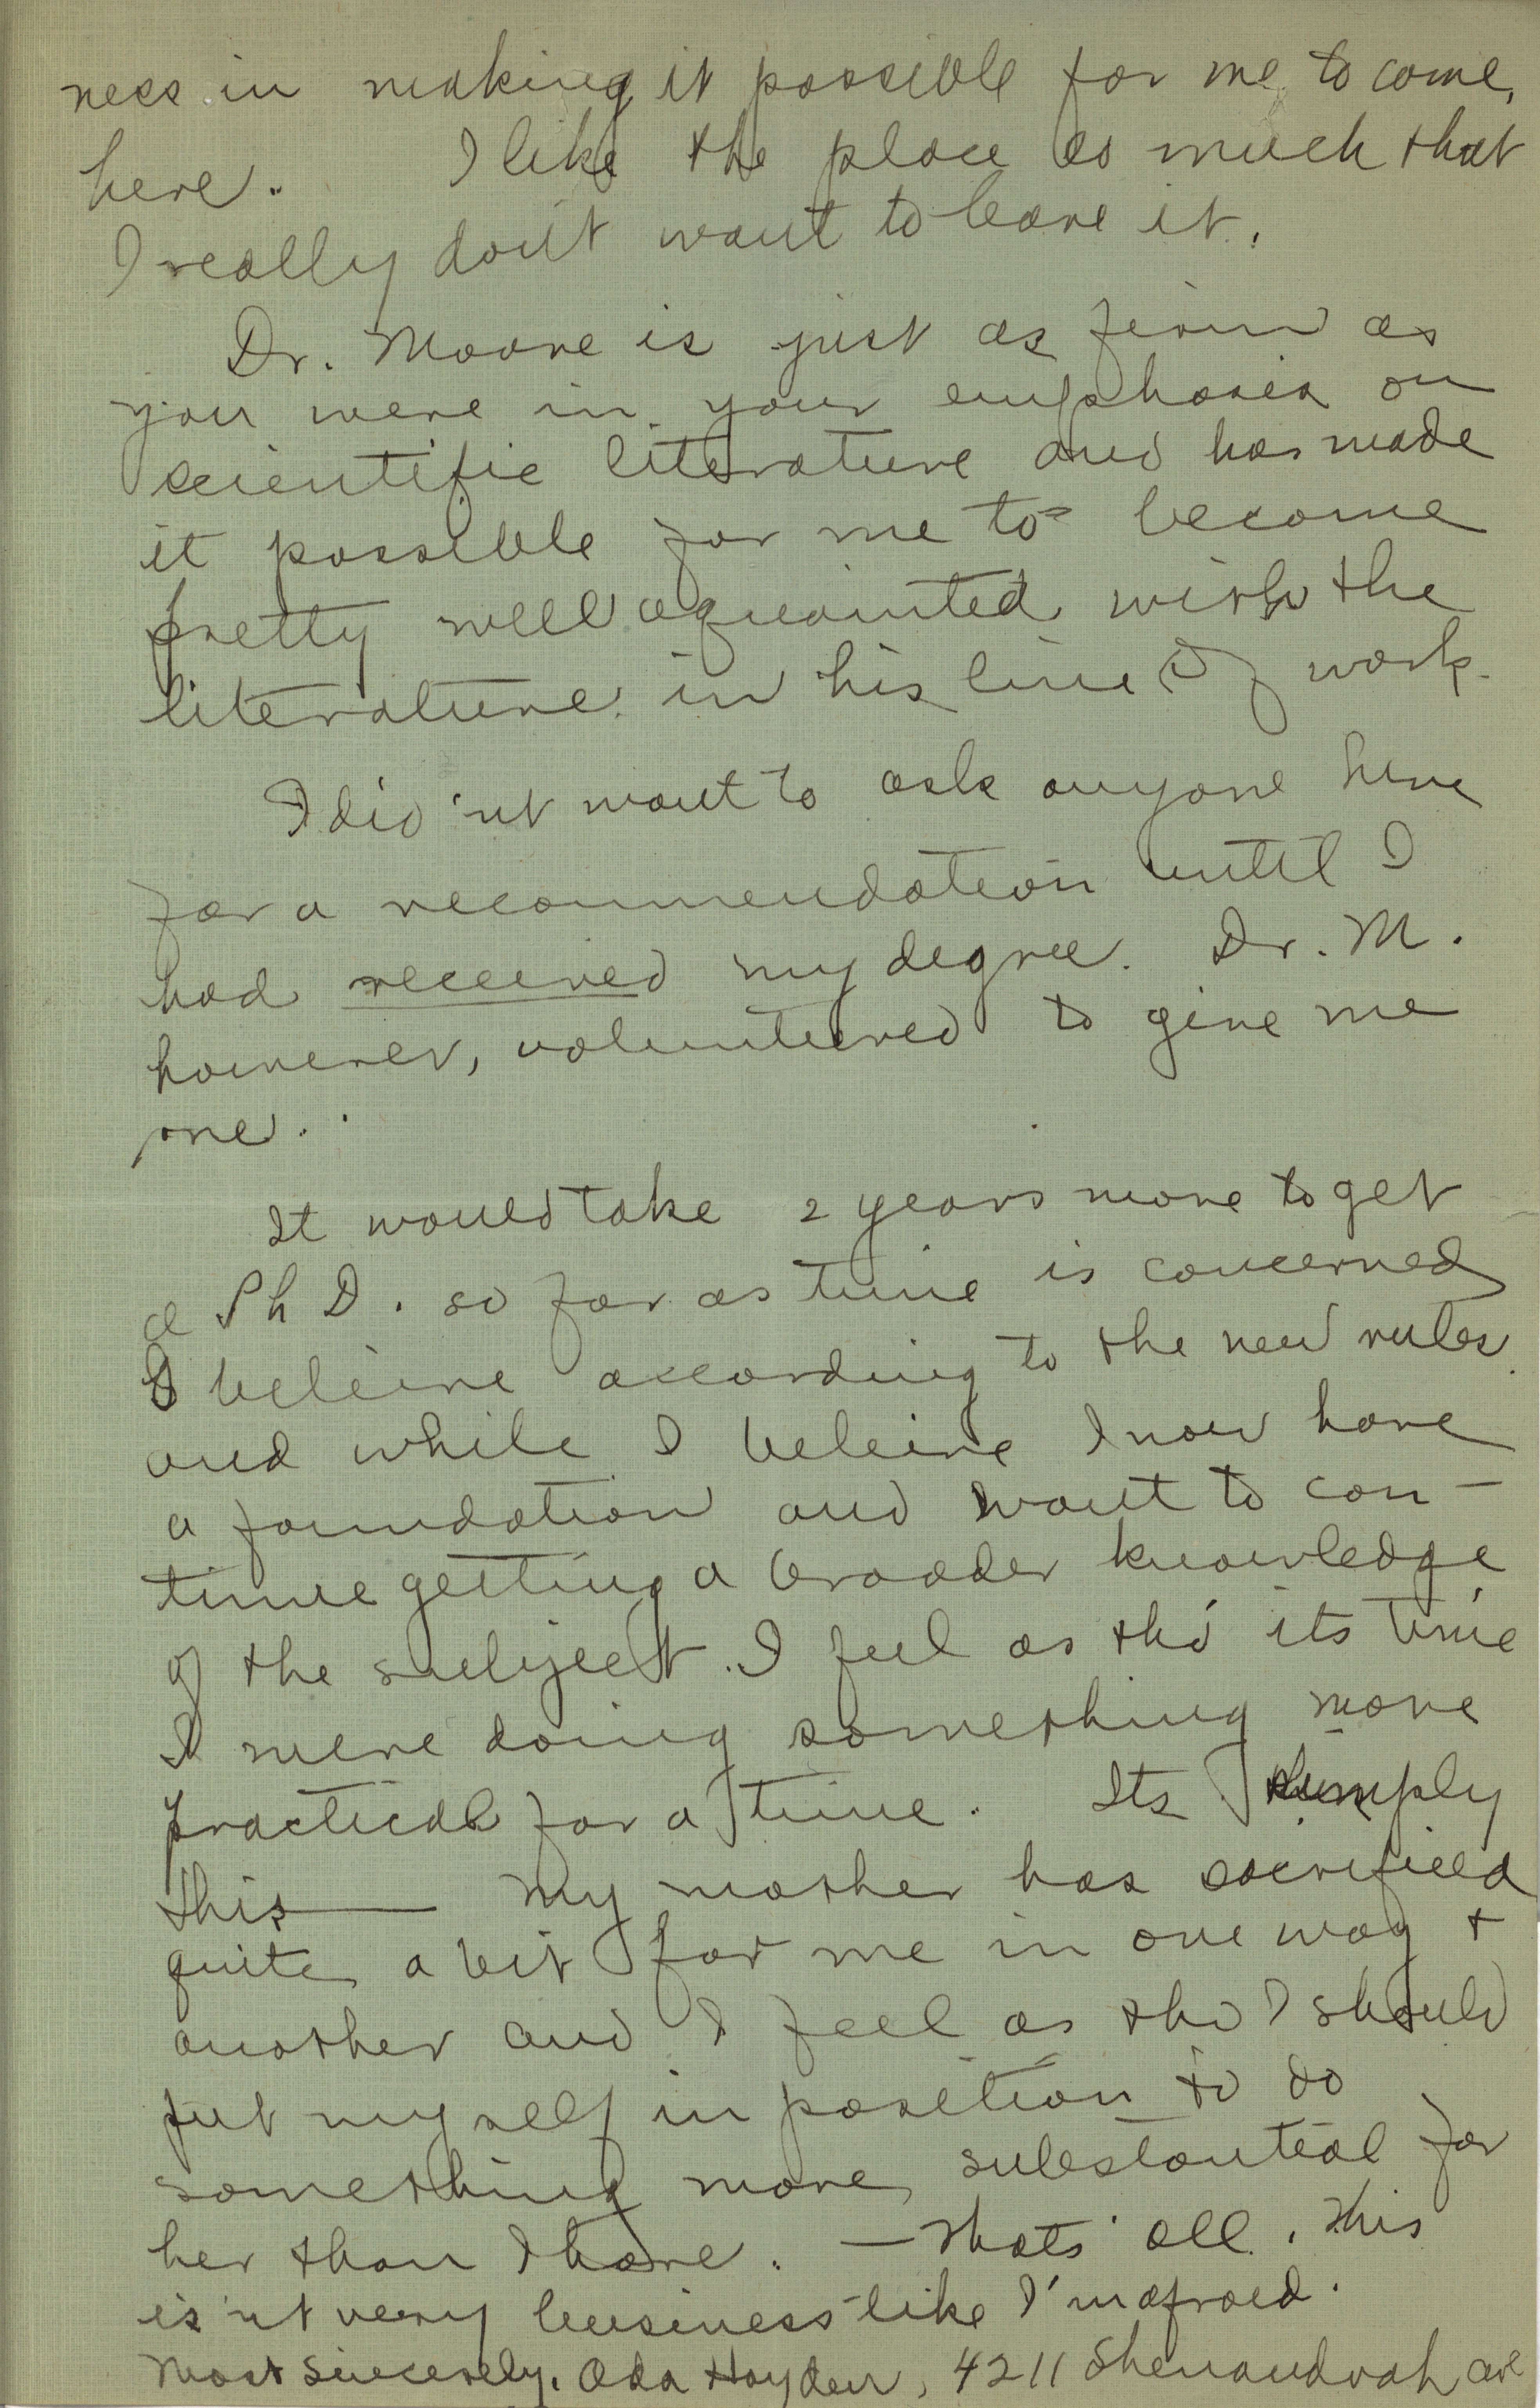 ness in making it possible for me to come,
here. I like the place so much that
I really don't want to leave it.
Dr. Moore is just as firm as
you were in your emphasis on
scientific literature and has made
it possible for me to become
pretty well aquainted with the
literature in his line of work.
I did'nt want to ask anyone here
for a recommendation until I
had received my degree. Dr. M.
however, volunteered to give me
one.
It would take 2 years more to get
a Ph D. so far as time is concerned
I beleive according to the new rules
and while I beleive I now have
a foundation and want to con-
tinue getting a broader knowledge
of the subject. I feel as tho' its time
I were doing something more
practical for a time. Its simply
this— My mother has sacrificed
quite a bit for me in one way +
another and I feel as tho I should
put myself in position to do
something more substantial for
her than I have. — Thats' all. This
is'nt very business like I'm afraid.
Most sincerely. Ada Hayden, 4211 Shenandoah ave